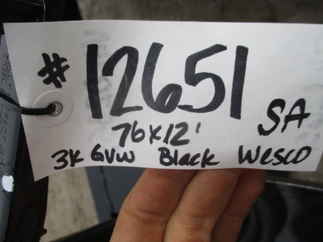 # 12651
76x12' SA
3K GVW Black Wesco